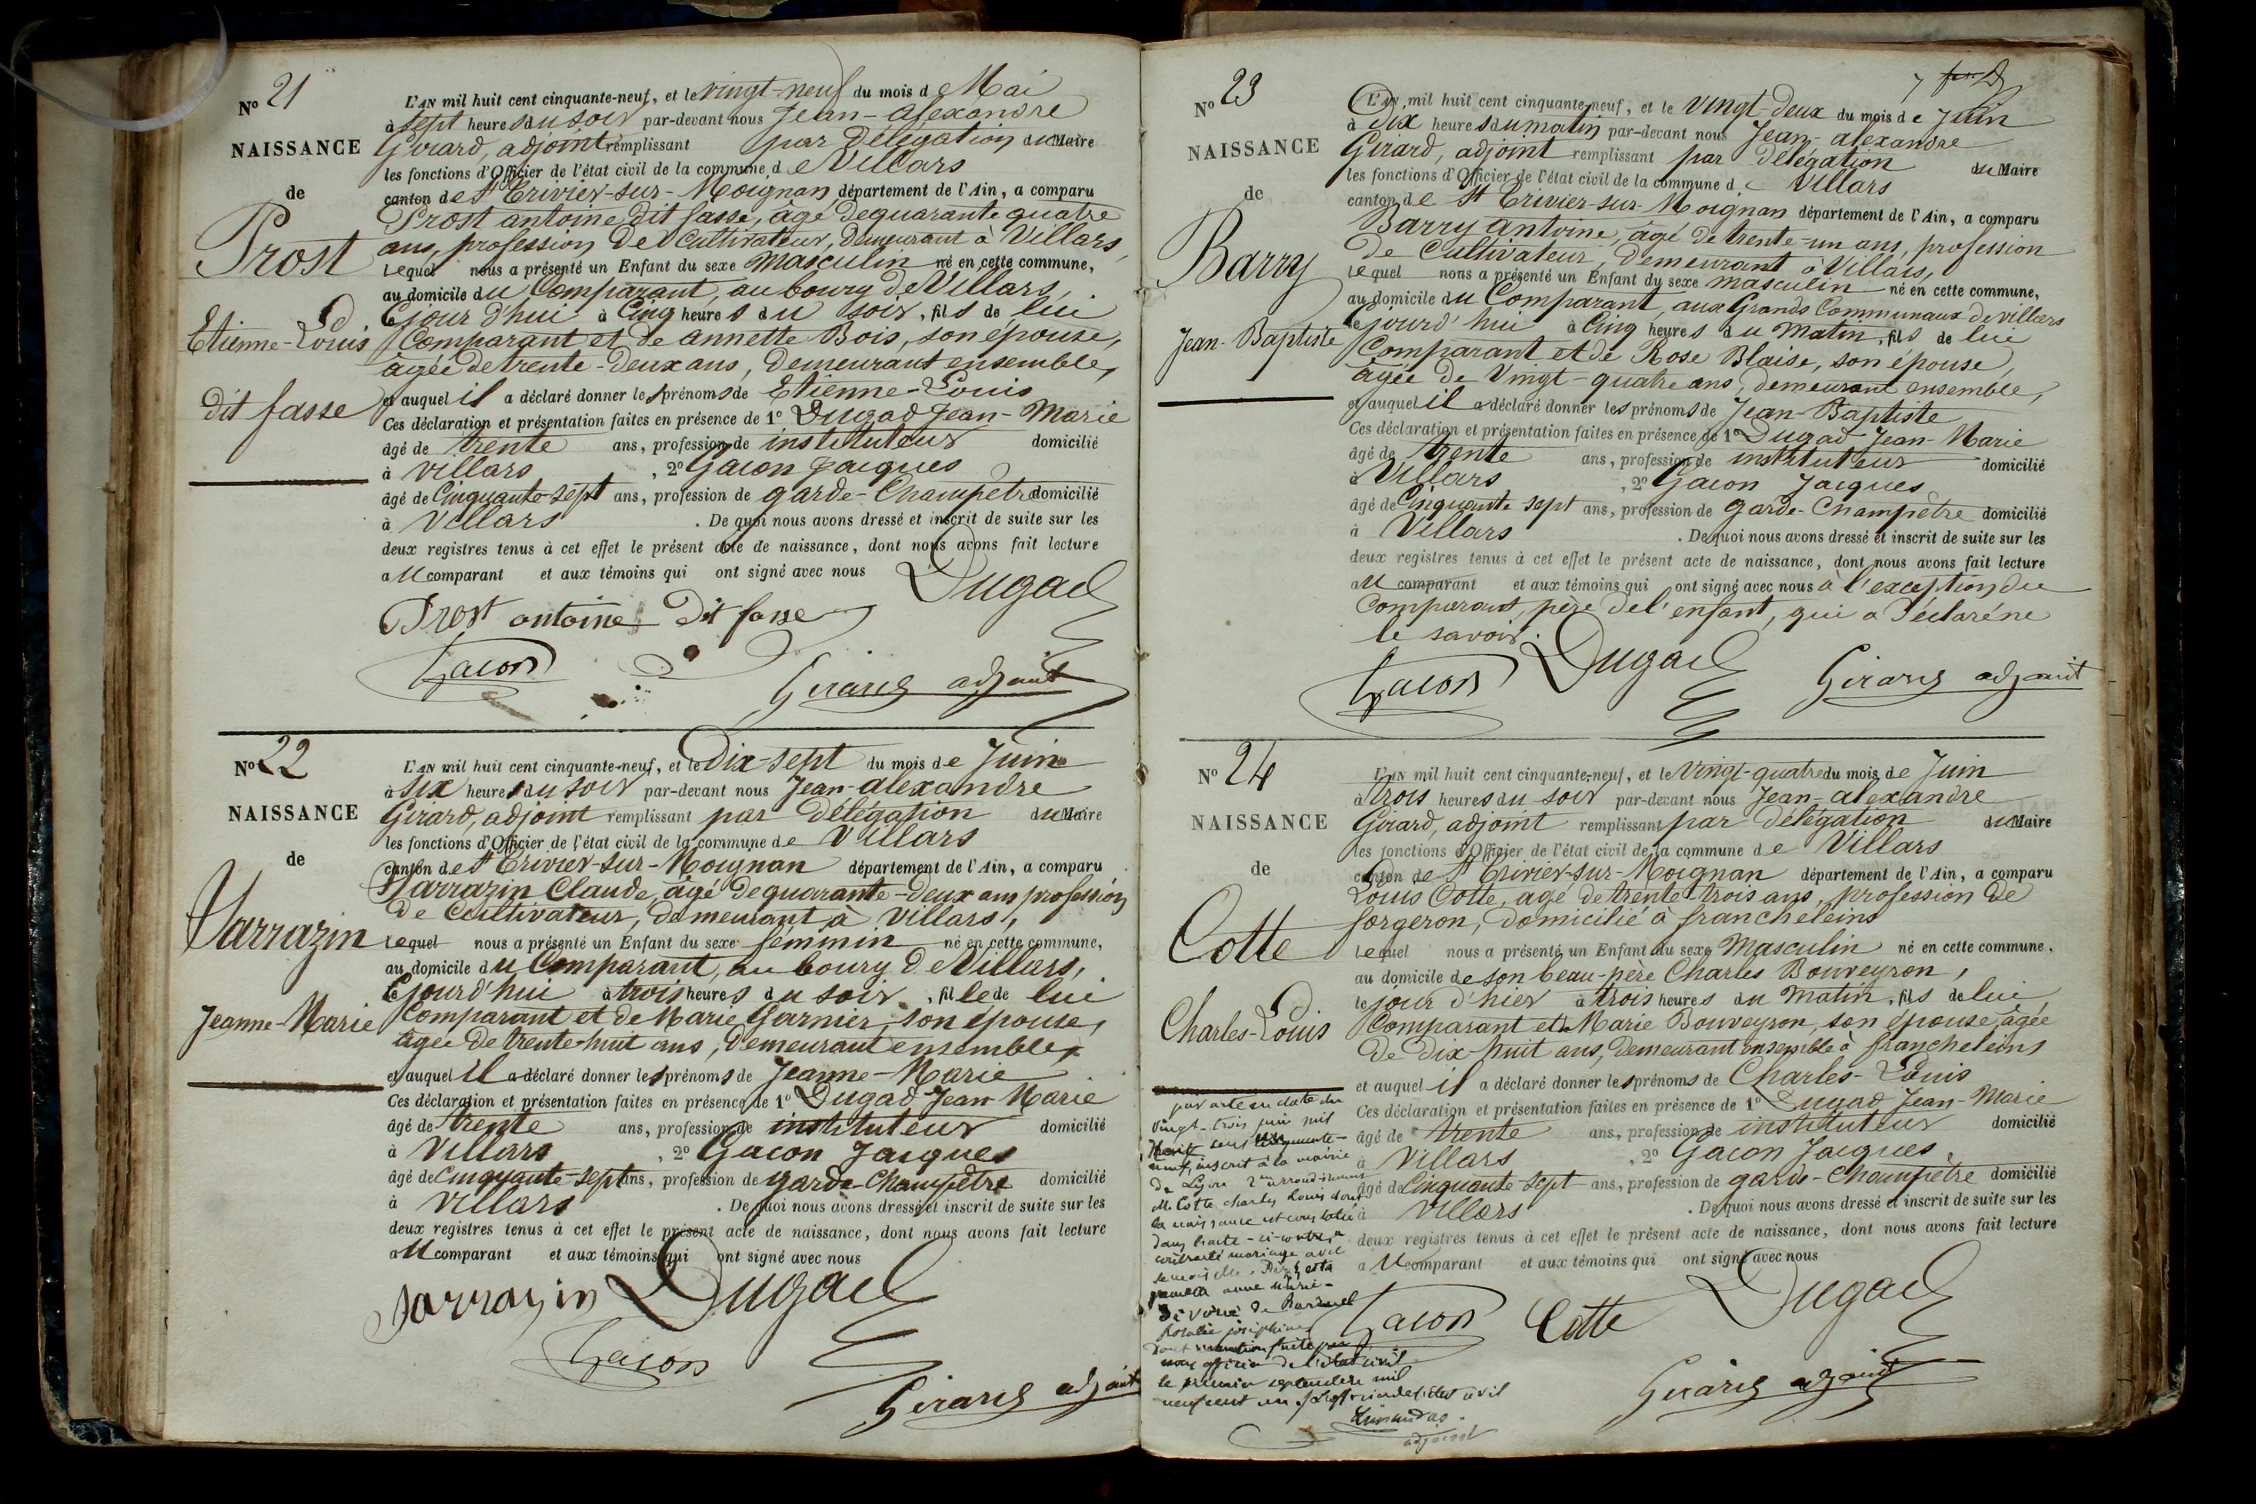 No 21
NAISSANCE
de
Prost
Etienne-Louis
dit fasse
L'AN mil huit cent cinquante-neuf, et le vingt-neuf du mois de Mai
à sept heures du soir par-devant nous Jean-alexandre
Girard, adjoint remplissant par Délégation du Maire
les fonctions d'Officier de l'état civil de la commune de Villars
canton de St Trivier-sur-Moignan département de l'Ain, a comparu
Prost antoine dit fasse, âgé de quarante quatre
ans, profession de Cultivateur, demeurant à Villars,
Lequel nous a présenté un Enfant du sexe Masculin né en cette commune,
au domicile du Comparant, au bourg de Villars,
Cejour d'hui à Cinq heures du soir, fils de lui
Comparant et de annette Bois, son épouse,
âgée de trente-deux ans, Demeurant ensemble,
et auquel il a déclaré donner les prénoms de Etienne-Louis
Ces déclaration et présentation faites en présence de 1° Dugad Jean-Marie
âgé de trente ans, profession de instituteur domicilié
à villars, 2° Gacon Jacques
âgé de Cinquante-sept ans, profession de garde-Champêtre domicilié
à Villars. De quoi nous avons dressé et inscrit de suite sur les
deux registres tenus à cet effet le présent acte de naissance, dont nous avons fait lecture
au comparant et aux témoins qui ont signé avec nous
Dugad
Prost antoine Dit fasse
Gacon
Girard adjoint
No 22
NAISSANCE
de
Sarrazin
Jeanne-Marie
L'AN mil huit cent cinquante-neuf, et le Dix-sept du mois de Juin
à six heures du soir par-devant nous Jean-alexandre
Girard, adjoint remplissant par Délégation du Maire
les fonctions d'Officier de l'état civil de la commune de Villars
canton de St Trivier-sur-Moignan département de l'Ain, a comparu
Sarrazin Claude, âgé de quarante-deux ans profession
de Cultivateur, demeurant à villars,
Lequel nous a présenté un Enfant du sexe féminin né en cette commune,
au domicile du Comparant, au bourg de Villars,
Cejourd'hui à trois heures du soir, fille de lui
Comparant et de Marie Garnier, son épouse,
âgée de trente-huit ans, Demeurant ensemble,
et auquel il a déclaré donner les prénoms de Jeanne-Marie
Ces déclaration et présentation faites en présence de 1° Dugad Jean Marie
âgé de trente ans, profession de instituteur domicilié
à Villars, 2° Gacon Jacques
âgé de cinquante-sept ans, profession de garde-Champêtre domicilié
à Villars. De quoi nous avons dressé et inscrit de suite sur les
deux registres tenus à cet effet le présent acte de naissance, dont nous avons fait lecture
au comparant et aux témoins qui ont signé avec nous
Sarrazin Dugad
Gacon
Girard adjoint
7
No 23
NAISSANCE
de
Barry
Jean-Baptiste
L'AN mil huit cent cinquante-neuf, et le vingt-deux du mois de Juin
à Dix heures du matin par-devant nous Jean-alexandre
Girard, adjoint remplissant par délégation du Maire
les fonctions d'Officier de l'état civil de la commune de Villars
canton de St Trivier-sur-Moignan département de l'Ain, a comparu
Barry antoine, âgé de trente-un ans, profession
de Cultivateur, Demeurant à Villars,
Lequel nous a présenté un Enfant du sexe masculin né en cette commune,
au domicile du Comparant, aux Grands Communaux de villars
Cejourd'hui à Cinq heures du Matin, fils de lui
Comparant et de Rose Blaise, son épouse,
âgée de Vingt-quatre ans, demeurant ensemble,
et auquel il a déclaré donner les prénoms de Jean-Baptiste
Ces déclaration et présentation faites en présence de 1° Dugad Jean-Marie
âgé de trente ans, profession de instituteur domicilié
à Villars, 2° Gacon Jacques
âgé de Cinquante sept ans, profession de garde-Champêtre domicilié
à Villars. De quoi nous avons dressé et inscrit de suite sur les
deux registres tenus à cet effet le présent acte de naissance, dont nous avons fait lecture
au comparant et aux témoins qui ont signé avec nous à l'exception du
Comparant, père de l'enfant, qui a Déclaré ne
le savoir.
Gacon Dugad Girard adjoint
No 24
NAISSANCE
de
Cotte
Charles-Louis
L'AN mil huit cent cinquante-neuf, et le vingt-quatre du mois de Juin
à trois heures du soir par-devant nous Jean-alexandre
Girard, adjoint remplissant par Délégation du Maire
les fonctions d'Officier de l'état civil de la commune de Villars
canton de St Trivier-sur-Moignan département de l'Ain, a comparu
Louis Cotte, âgé de trente-trois ans, profession de
forgeron, domicilié à francheleins
Lequel nous a présenté un Enfant du sexe Masculin né en cette commune,
au domicile de son beau-père Charles Bouveyron,
le jour d'hier à trois heures du Matin, fils de lui
Comparant et de Marie Bouveyron, son épouse, âgée
de dix huit ans, Demeurant ensemble à francheleins
et auquel il a déclaré donner les prénoms de Charles-Louis
Ces déclaration et présentation faites en présence de 1° Dugad Jean-Marie
âgé de trente ans, profession de instituteur domicilié
à Villars, 2° Gacon Jacques,
âgé de Cinquante-sept ans, profession de garde-Champêtre domicilié
à Villars. De quoi nous avons dressé et inscrit de suite sur les
deux registres tenus à cet effet le présent acte de naissance, dont nous avons fait lecture
au comparant et aux témoins qui ont signé avec nous
Gacon Cotte Dugad
Girard adjoint
par acte en date du
vingt-trois juin mil
neuf, inscrit à la mairie
de Lyon 2me arrondissement
M. Cotte Charles Louis dont
la naissance est constatée
dans l'acte ci-contre, a
contracté mariage avec
anne marie
divorcée de
Rosalie joséphine
Dont mention faite par
nous officier de l'état civil
le premier septembre mil
neuf cent un
adjoint